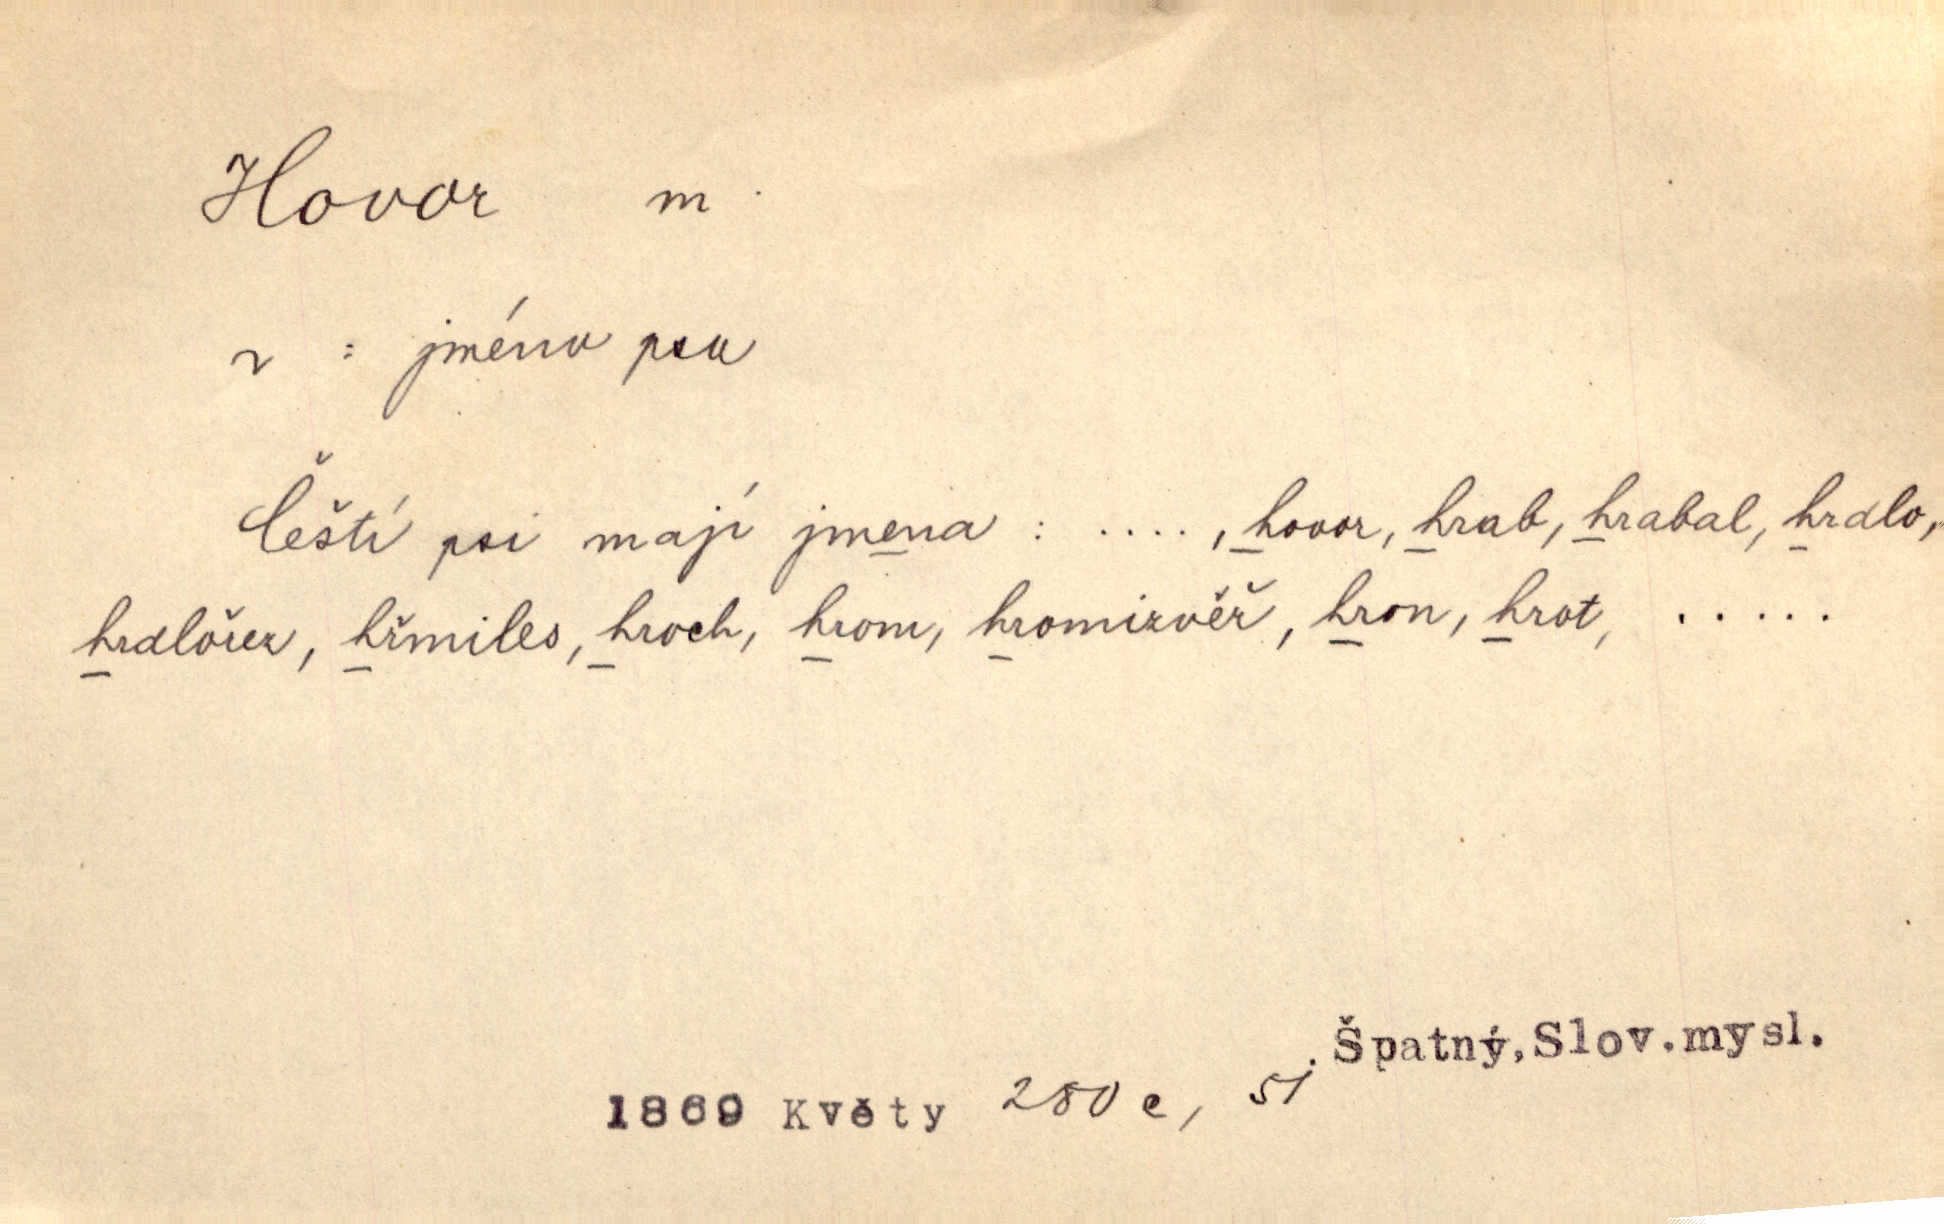 Hovor m.
~ : jméno psa
Čeští psi mají jmena : ...., hovor, hrab, hrabal, hrdlo,
hrdlořez, hřmiles, hroch, hrom, hromizvěř, hron, hrot, .....
Špatný,Slov.mysl.
1869 Květy 280 c, 51